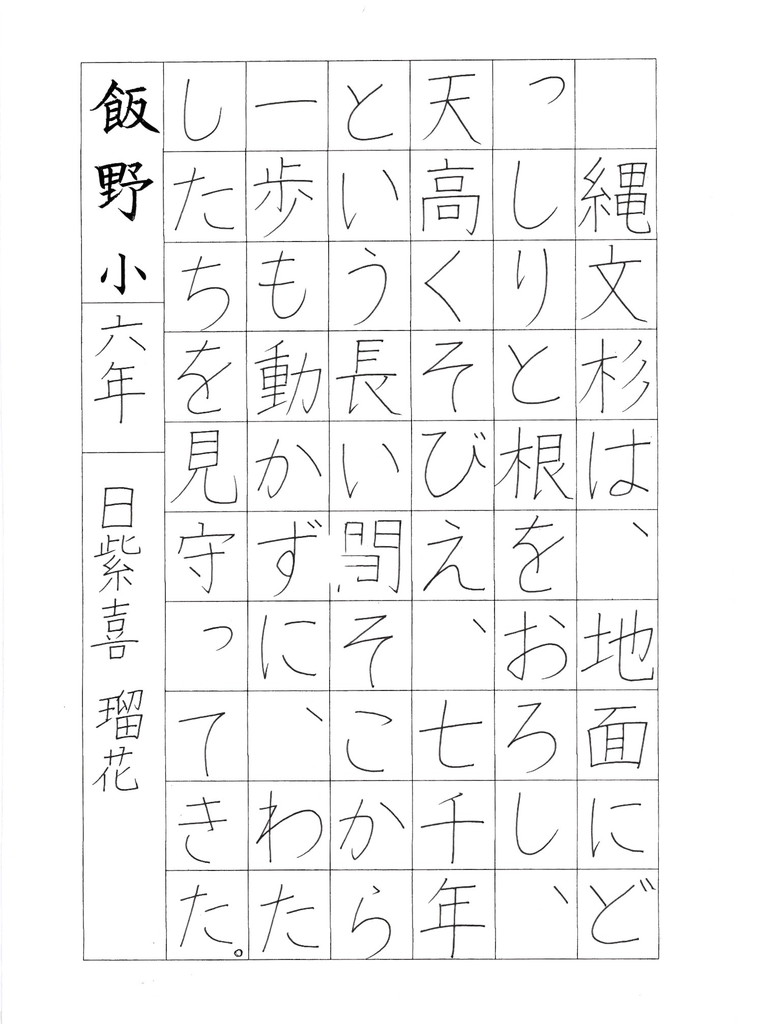 縄文杉は、地面にど
っしりと根をおろし、
天高くそびえ、七千年
という長い間そこから
一歩も動かずに、わた
したちを見守ってきた。
飯野小 六年 日紫喜 瑠花